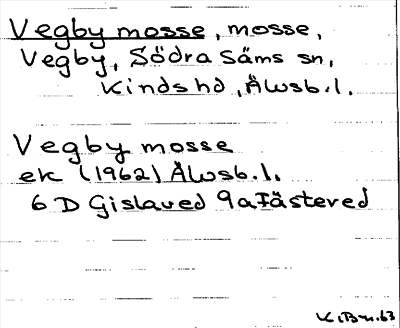 Vegby mosse, mosse,
Vegby, Södra Säms sn,
Kinds hd, Älvsb.l.
Vegby mosse
ek (1962) Älvsb.l.
6 D Gislaved 9a Fästered
K.Bn.63